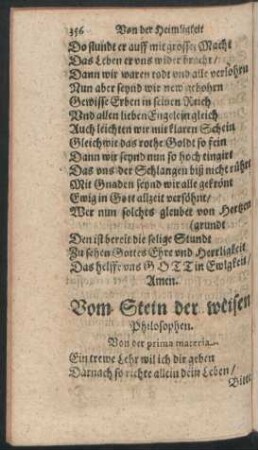 356 Von der Heimligkeit
Do stundt er auff mit grosser Macht
Das Leben er uns wider bracht/
Dann wir waren todt und alle verlohrn
Nun aber seynd wir new gebohrn
Gewisse Erben in seinen Reich
Und allen lieben Engelein gleich
Auch leichten wir mit klaren Schein
Gleich wie das rothe Goldt so fein
Dann wir seynd nun so hoch tingirt
Das uns der Schlangen biß nicht rührt
Mit Gnaden seynd wir alle gekrönt
Ewig in Gott allzeit versöhnt/
Wer nun solchts gleubet von Hertzen
(grundt
Den ist bereit die selige Stundt
Zu sehen Gottes Ehre und Herrligkeit
Das helffe uns GOTT in Ewigkeit/
Amen.
Vom Stein der weisen
Philosophen.
Von der prima materia.
Ein trewe Lehr wil ich dir geben
Darnach so richte allein dein Leben/
Bitte